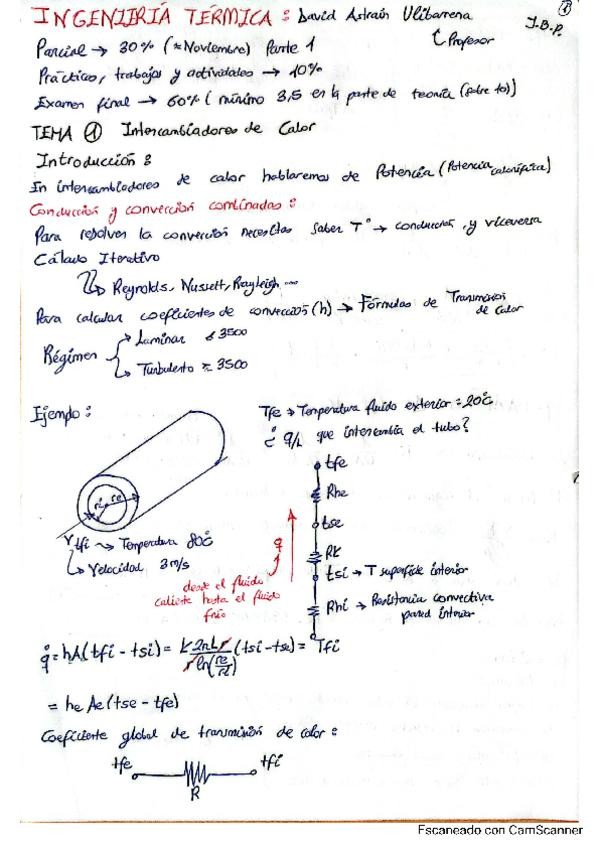 INGENIIRIÁ TÉRMICA : David Astrain Ulibarrena
①
J.B.P.
Parcial → 30% (≈Noviembre) Parte 1
↳ Profesor
Prácticas, trabajos y actividades → 10%
Examen final → 60% ( mínimo 3,5 en la parte de teoría (sobre 10))
TEMA ① Intercambiadores de Calor
Introducción :
In intercambiadores de calor hablaremos de Potencia (Potencia calorífica)
Conducción y convección combinadas :
Para resolver la convección necesitas saber Tª → conducción, y viceversa
Cálculo Iterativo
↳ Reynolds, Nusselt, Rayleigh ...
Para calcular coeficientes de convección (h) → Fórmulas de Transmisión de Calor
Régimen
→ Laminar ≤ 3500
→ Turbulento ≈ 3500
Ejemplo :
Tfe → Temperatura fluido exterior = 20°C
¿ q̇/L que intercambia el tubo?
tfe
Rhe
tse
Rk
tsi → T superficie interior
Rhi → Resistencia convectiva pared interior
Tfi
ri re
tfi → Temperatura 80°C
↳ Velocidad 3 m/s
q̇
desde el fluido
caliente hasta el fluido
frío
q̇ = hA(tfi - tsi) = k2πLr / r ln(re/ri) (tsi - tse) =
= he Ae (tse - tfe)
Coeficiente global de transmisión de calor :
tfe tfi
R
Escaneado con CamScanner